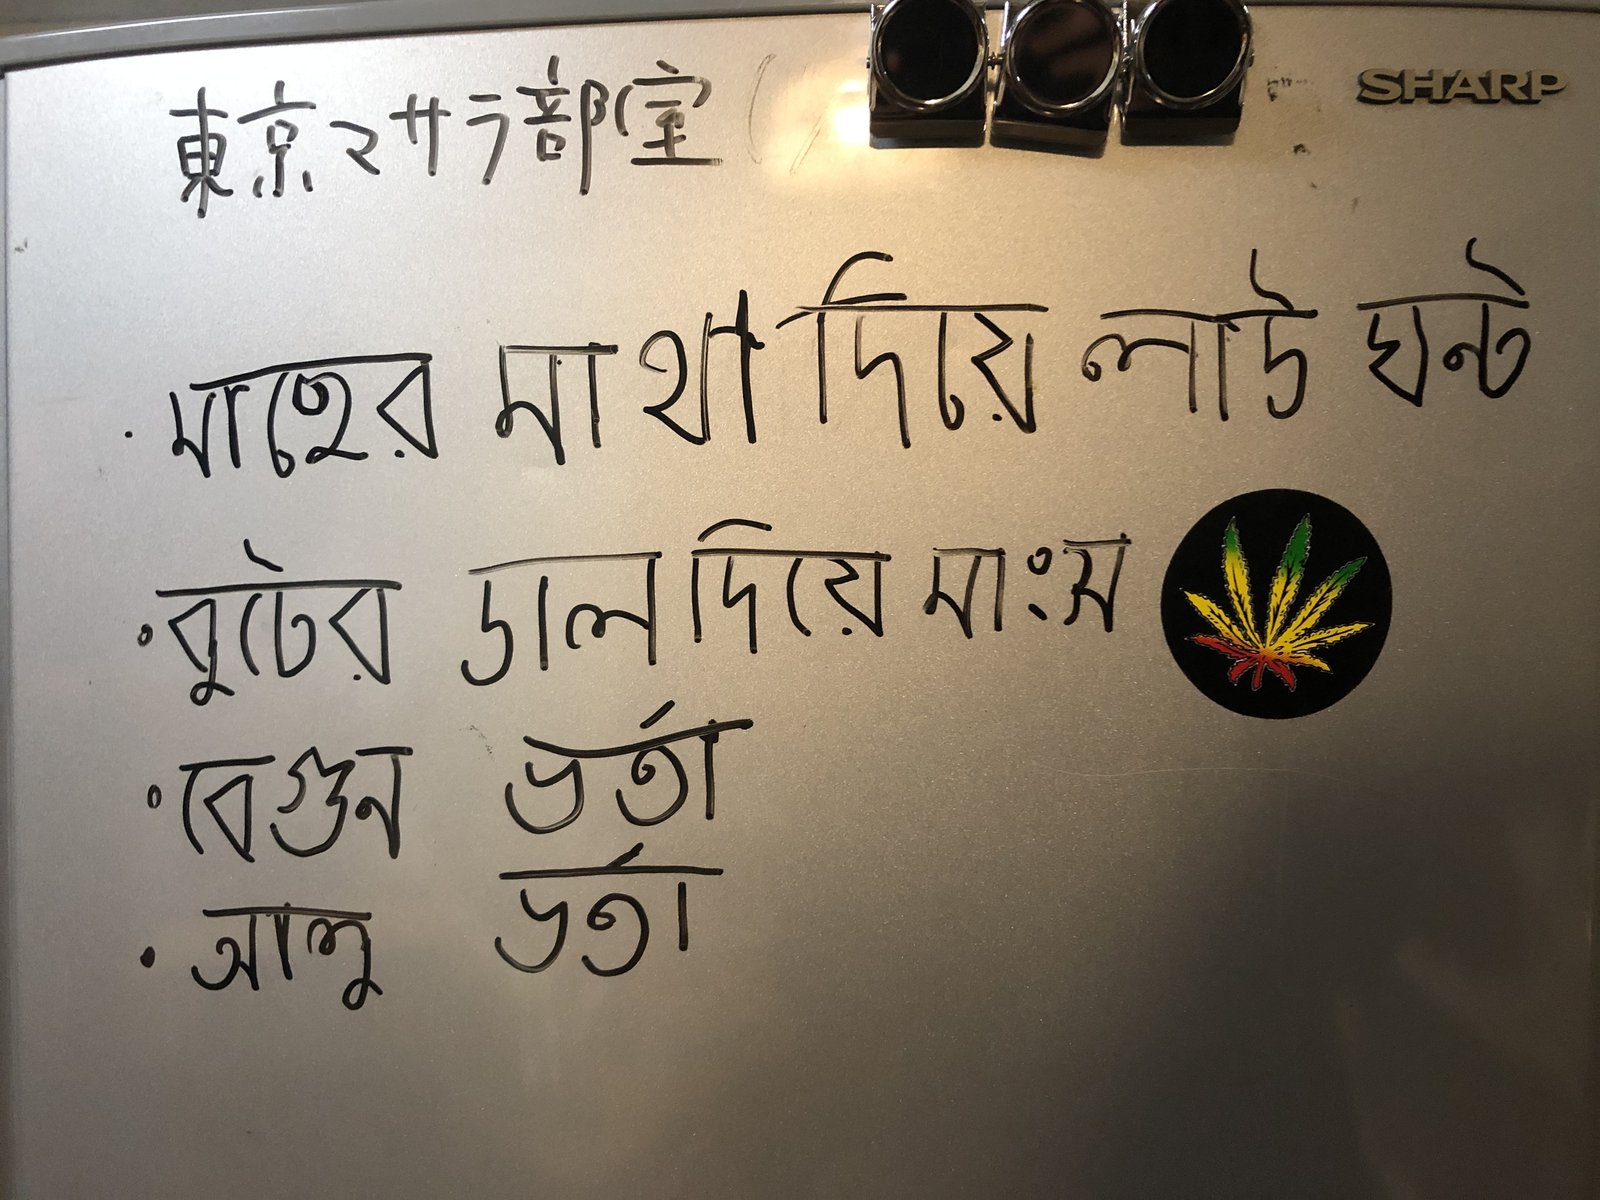 東京マサラ部室
SHARP
· মাছের মাথা দিয়ে লাউ ঘন্ট
· বুটের ডাল দিয়ে মাংস
· বেগুন ভর্তা
· আলু ভর্তা